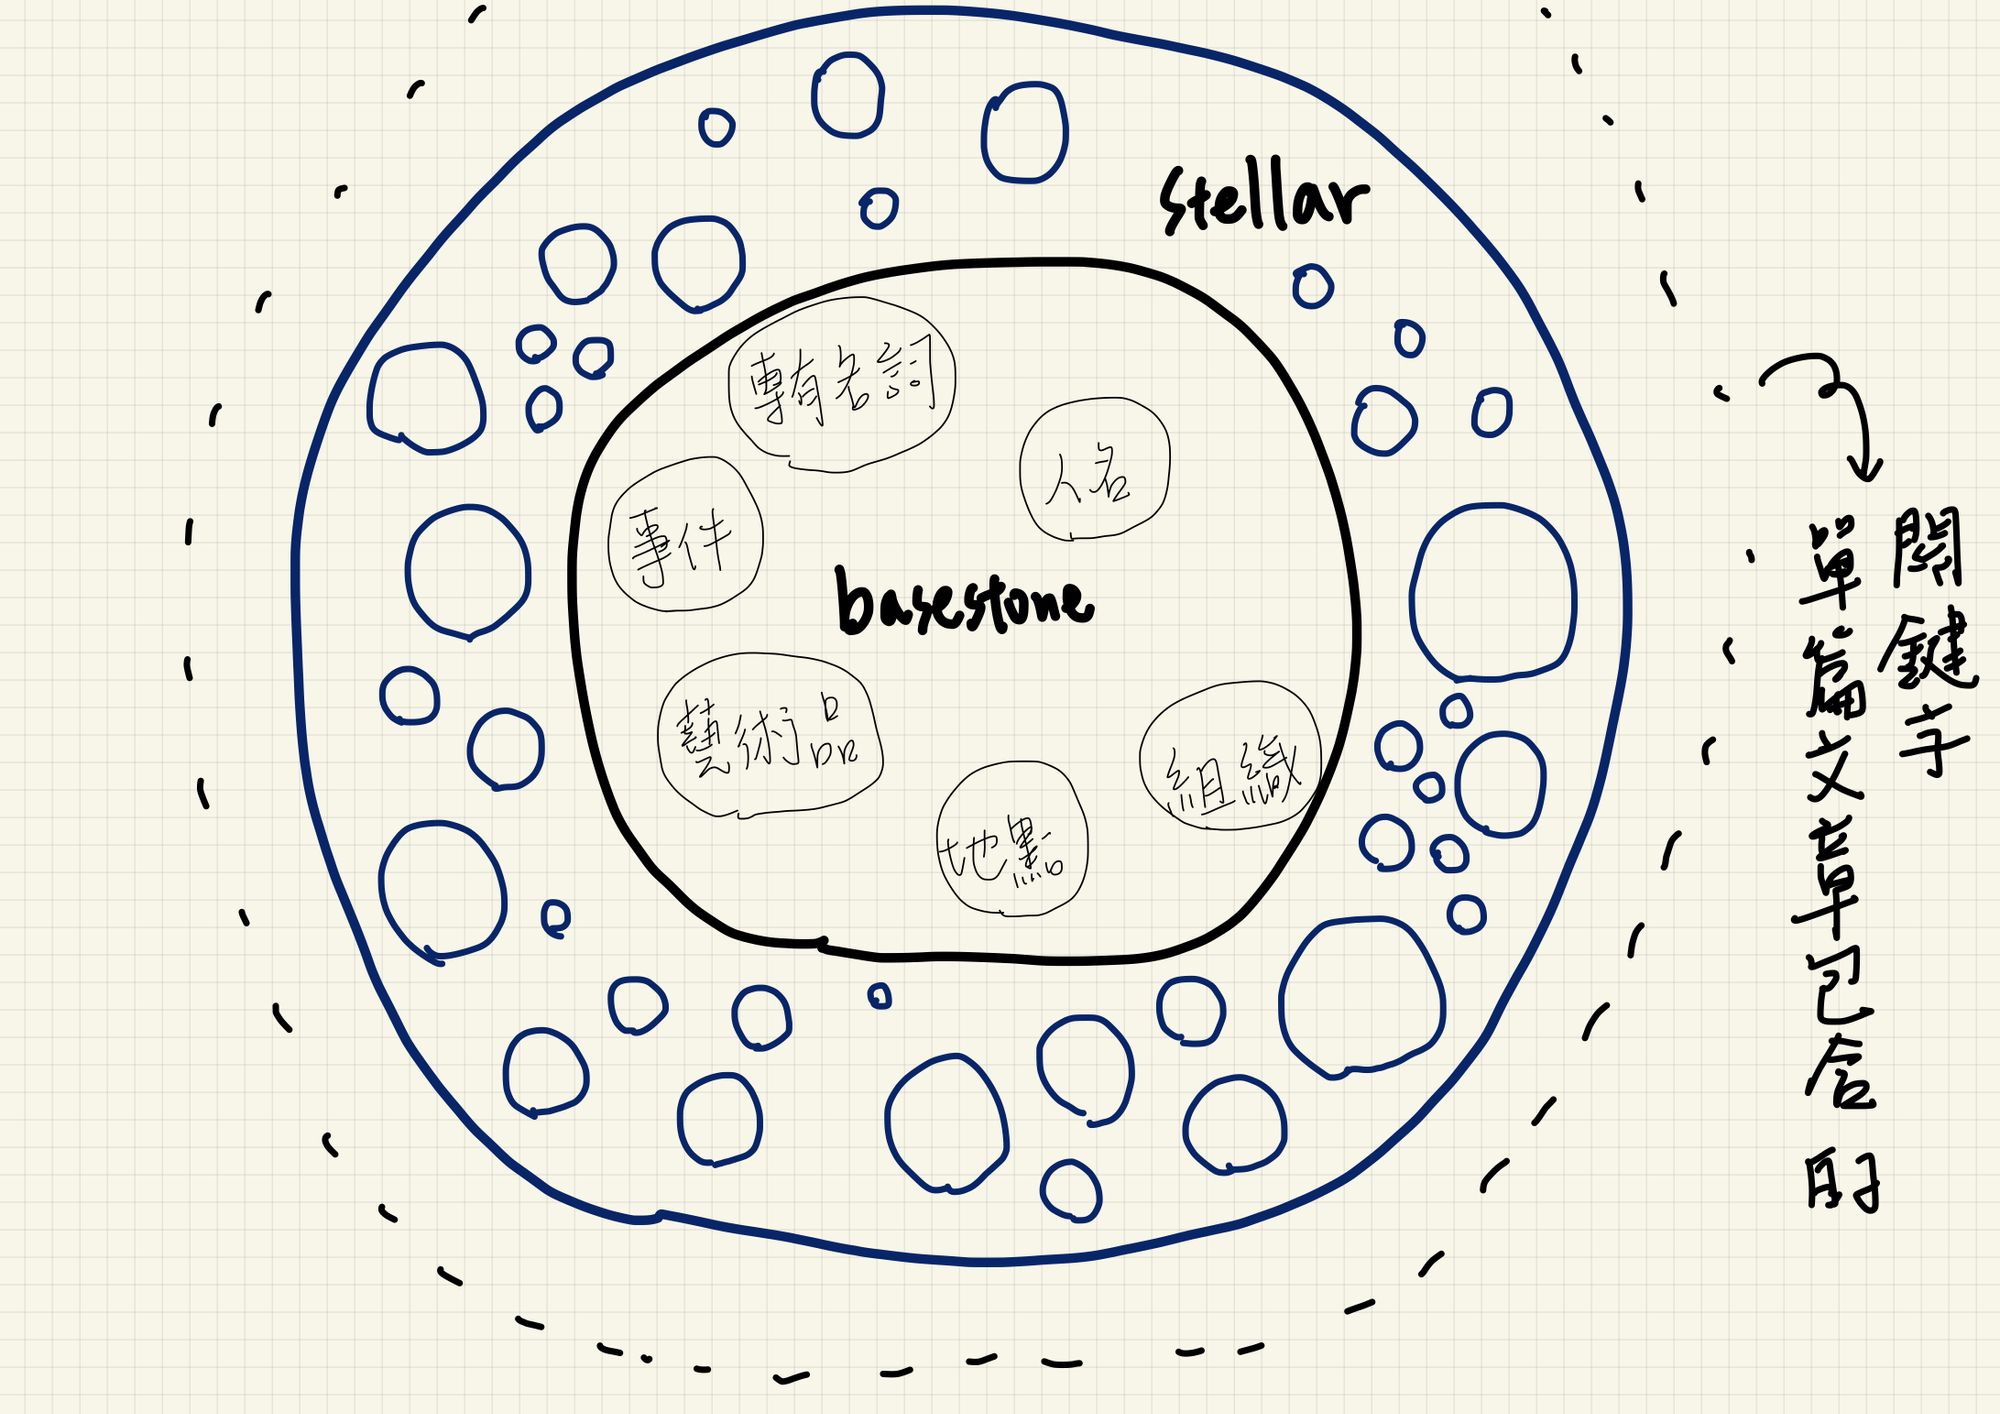 stellar
專有名詞
人名
事件
basestone
藝術品
組織
地點
關鍵字
單篇文章包含的